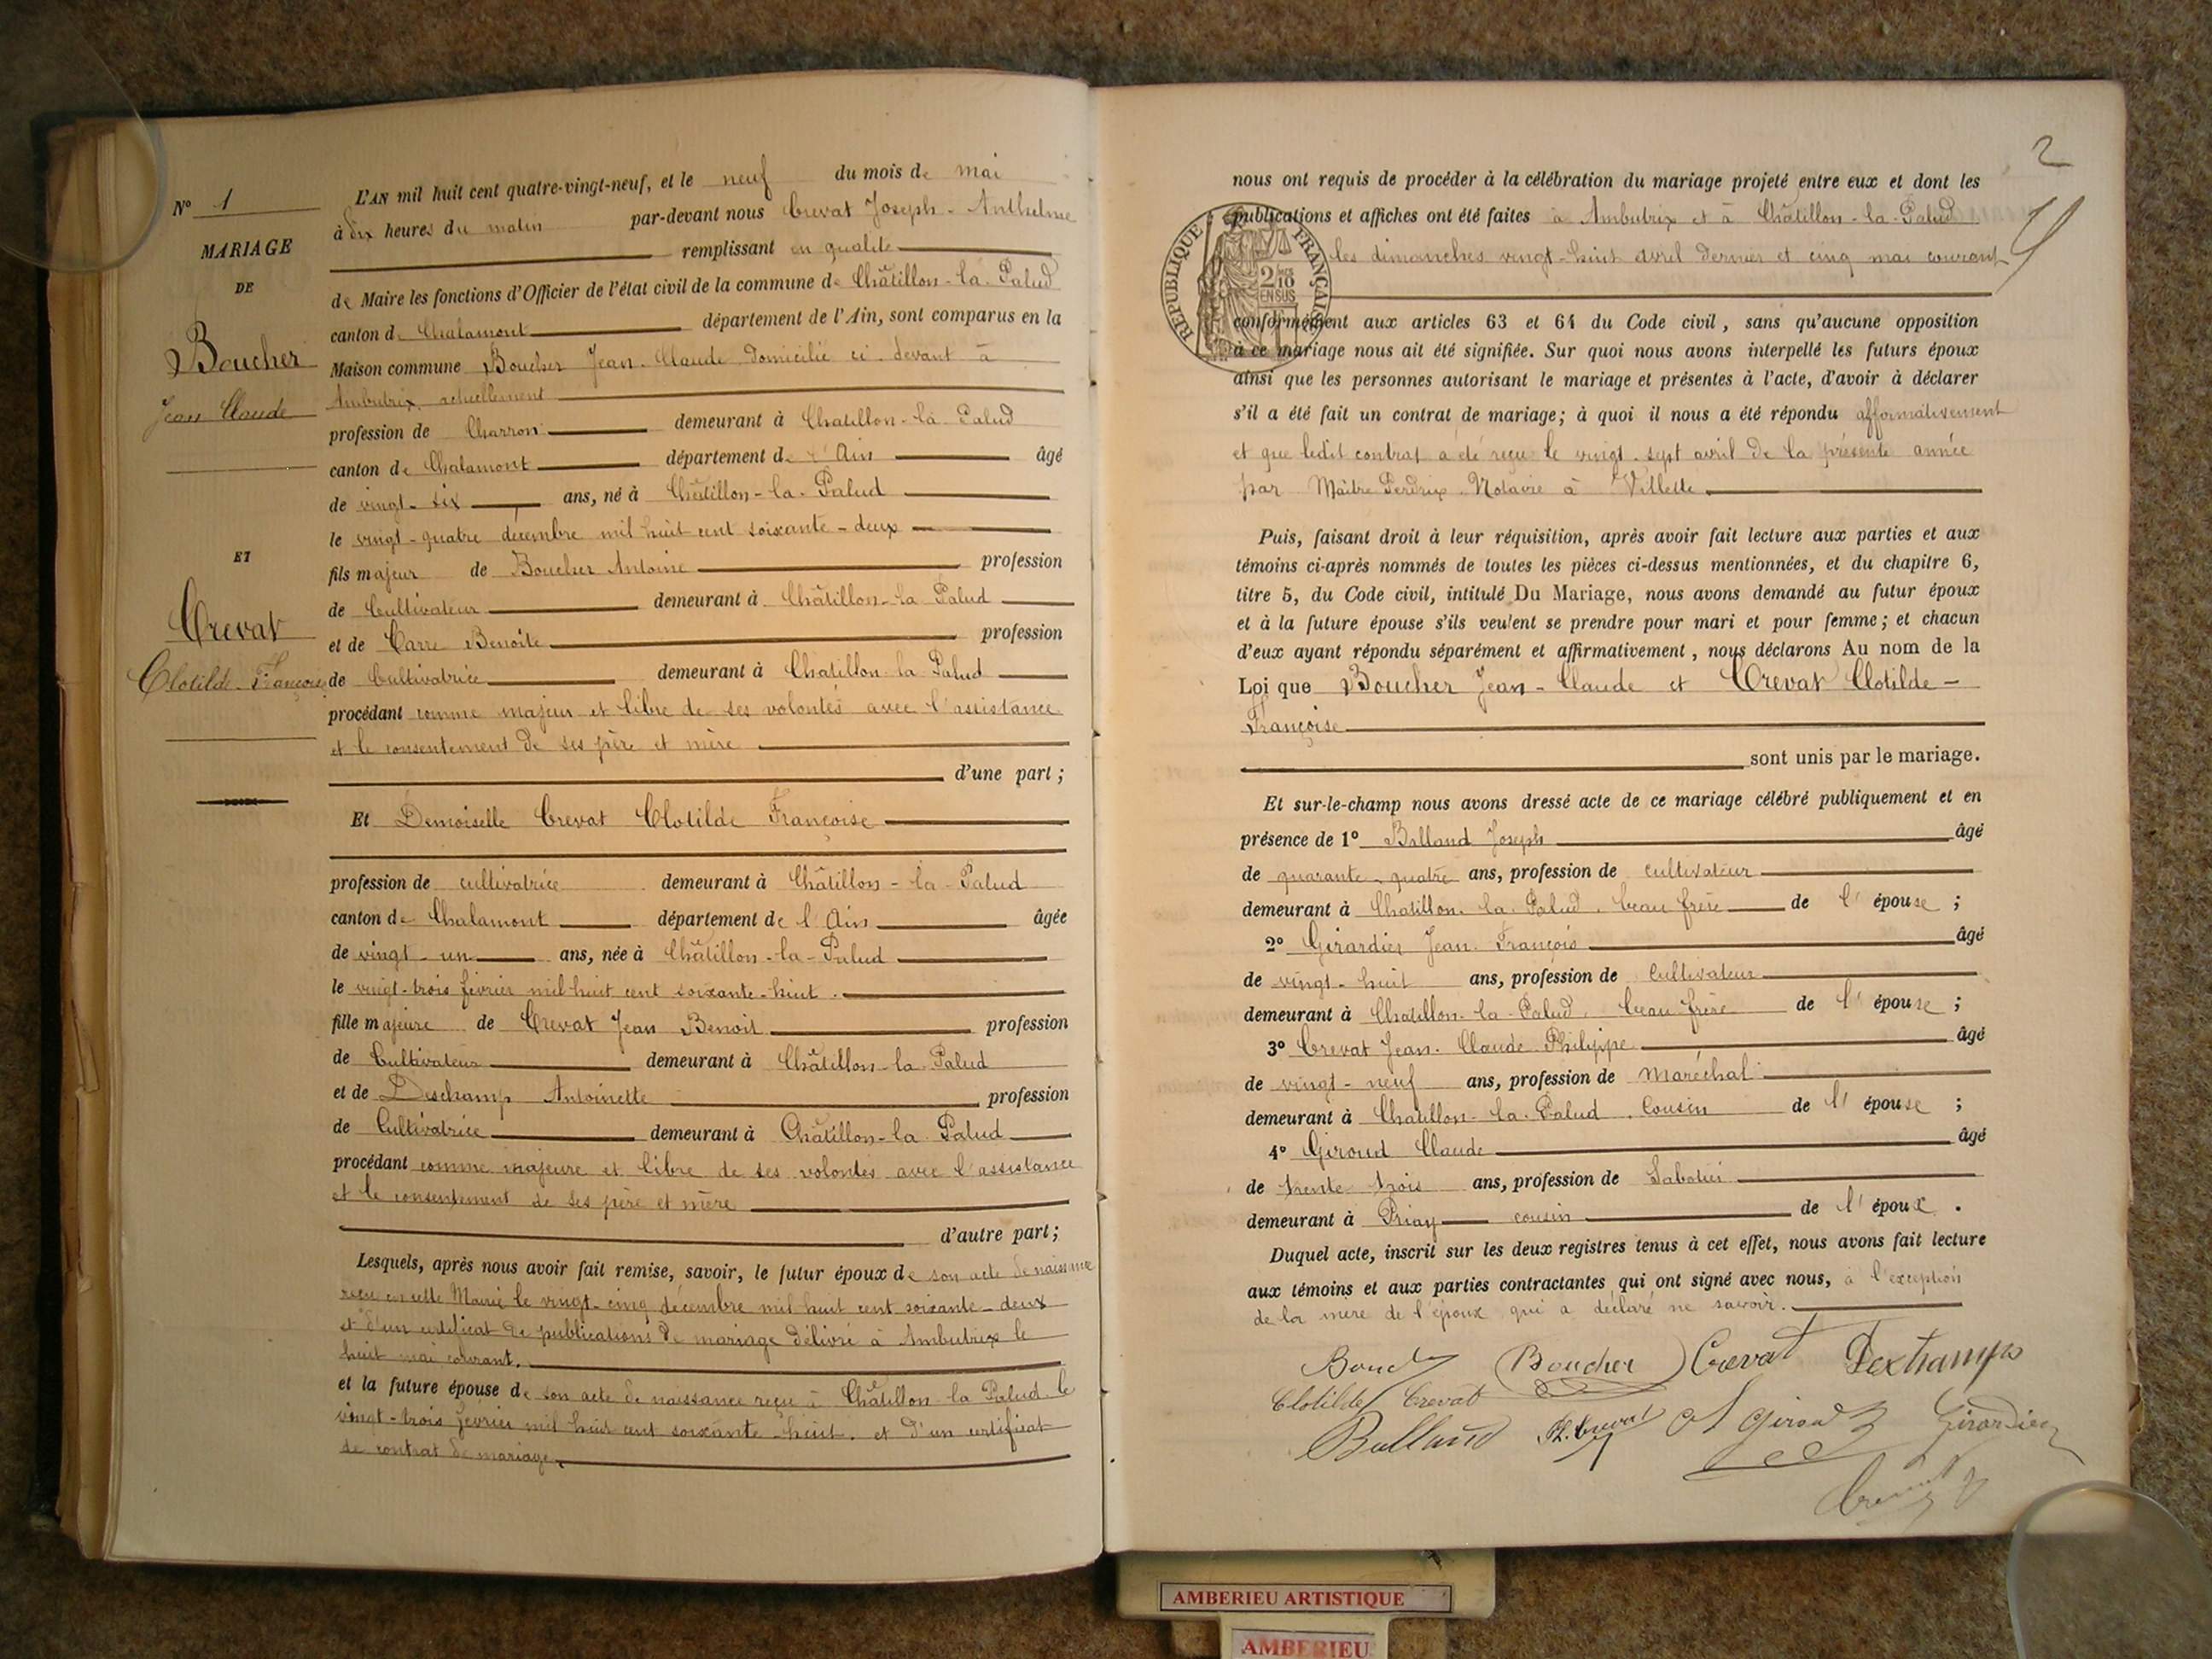 N° 1
MARIAGE
DE
Boucher
Jean Claude
ET
Crevat
Clotilde Françoise
L'AN mil huit cent quatre-vingt-neuf, et le neuf du mois de mai
à dix heures du matin par-devant nous Crevat Joseph-Anthelme
remplissant en qualité
de Maire les fonctions d'Officier de l'état civil de la commune de Châtillon-la-Palud
canton de Chalamont département de l'Ain, sont comparus en la
Maison commune Boucher Jean-Claude domicilié ci-devant à
Ambutrix actuellement
profession de Charron demeurant à Chatillon-la-Palud
canton de Chalamont département de l'Ain âgé
de vingt-six ans, né à Châtillon-la-Palud
le vingt-quatre décembre mil huit cent soixante-deux
fils majeur de Boucher Antoine profession
de Cultivateur demeurant à Châtillon-la Palud
et de Carre Benoite profession
de Cultivatrice demeurant à Chatillon la Palud
procédant comme majeur et libre de ses volontés avec l'assistance
et le consentement de ses père et mère
d'une part ;
Et Demoiselle Crevat Clotilde Françoise
profession de cultivatrice demeurant à Châtillon-la-Palud
canton de Chalamont département de l'Ain âgée
de vingt-un ans, née à Châtillon-la-Palud
le vingt-trois février mil huit cent soixante-huit.
fille majeure de Crevat Jean Benoit profession
de Cultivateur demeurant à Châtillon-la-Palud
et de Deschamp Antoinette profession
de Cultivatrice demeurant à Châtillon-la-Palud
procédant comme majeure et libre de ses volontés avec l'assistance
et le consentement de ses père et mère
d'autre part ;
Lesquels, après nous avoir fait remise, savoir, le futur époux de son acte de naissance
reçu en cette Mairie le vingt-cinq décembre mil huit cent soixante-deux
et d'un certificat de publications de mariage délivré à Ambutrix le
huit mai courant.
et la future épouse de son acte de naissance reçu à Châtillon-la Palud le
vingt-trois février mil huit cent soixante-huit. et d'un certificat
de contrat de mariage.
2
nous ont requis de procéder à la célébration du mariage projeté entre eux et dont les
publications et affiches ont été faites à Ambutrix et à Châtillon-la-Palud
les dimanches vingt-huit avril dernier et cinq mai courant
RÉPUBLIQUE FRANÇAISE
2/10
EN SUS
conformément aux articles 63 et 64 du Code civil, sans qu'aucune opposition
à ce mariage nous ait été signifiée. Sur quoi nous avons interpellé les futurs époux
ainsi que les personnes autorisant le mariage et présentes à l'acte, d'avoir à déclarer
s'il a été fait un contrat de mariage; à quoi il nous a été répondu affirmativement
et que ledit contrat a été reçu le vingt-sept avril de la présente année
par Maître Perdrix Notaire à Villette
Puis, faisant droit à leur réquisition, après avoir fait lecture aux parties et aux
témoins ci-après nommés de toutes les pièces ci-dessus mentionnées, et du chapitre 6,
titre 5, du Code civil, intitulé Du Mariage, nous avons demandé au futur époux
et à la future épouse s'ils veulent se prendre pour mari et pour femme ; et chacun
d'eux ayant répondu séparément et affirmativement, nous déclarons Au nom de la
Loi que Boucher Jean-Claude et Crevat Clotilde-
Françoise
sont unis par le mariage.
Et sur-le-champ nous avons dressé acte de ce mariage célébré publiquement et en
présence de 1° Balland Joseph âgé
de quarante-quatre ans, profession de cultivateur
demeurant à Chatillon-la-Palud, beau frère de l'épouse ;
2° Girardier Jean-François âgé
de vingt-huit ans, profession de Cultivateur
demeurant à Chatillon-la-Palud, beau frère de l'épouse ;
3° Crevat Jean-Claude-Philippe âgé
de vingt-neuf ans, profession de Maréchal
demeurant à Chatillon-la-Palud, Cousin de l'épouse ;
4° Giroud Claude âgé
de trente trois ans, profession de Sabotier
demeurant à Priay cousin de l'époux.
Duquel acte, inscrit sur les deux registres tenus à cet effet, nous avons fait lecture
aux témoins et aux parties contractantes qui ont signé avec nous, à l'exception
de la mère de l'époux qui a déclaré ne savoir.
Boucher Crevat Dextramps
Clotilde Crevat
Balland Giroud Girardier
AMBERIEU ARTISTIQUE
AMBERIEU